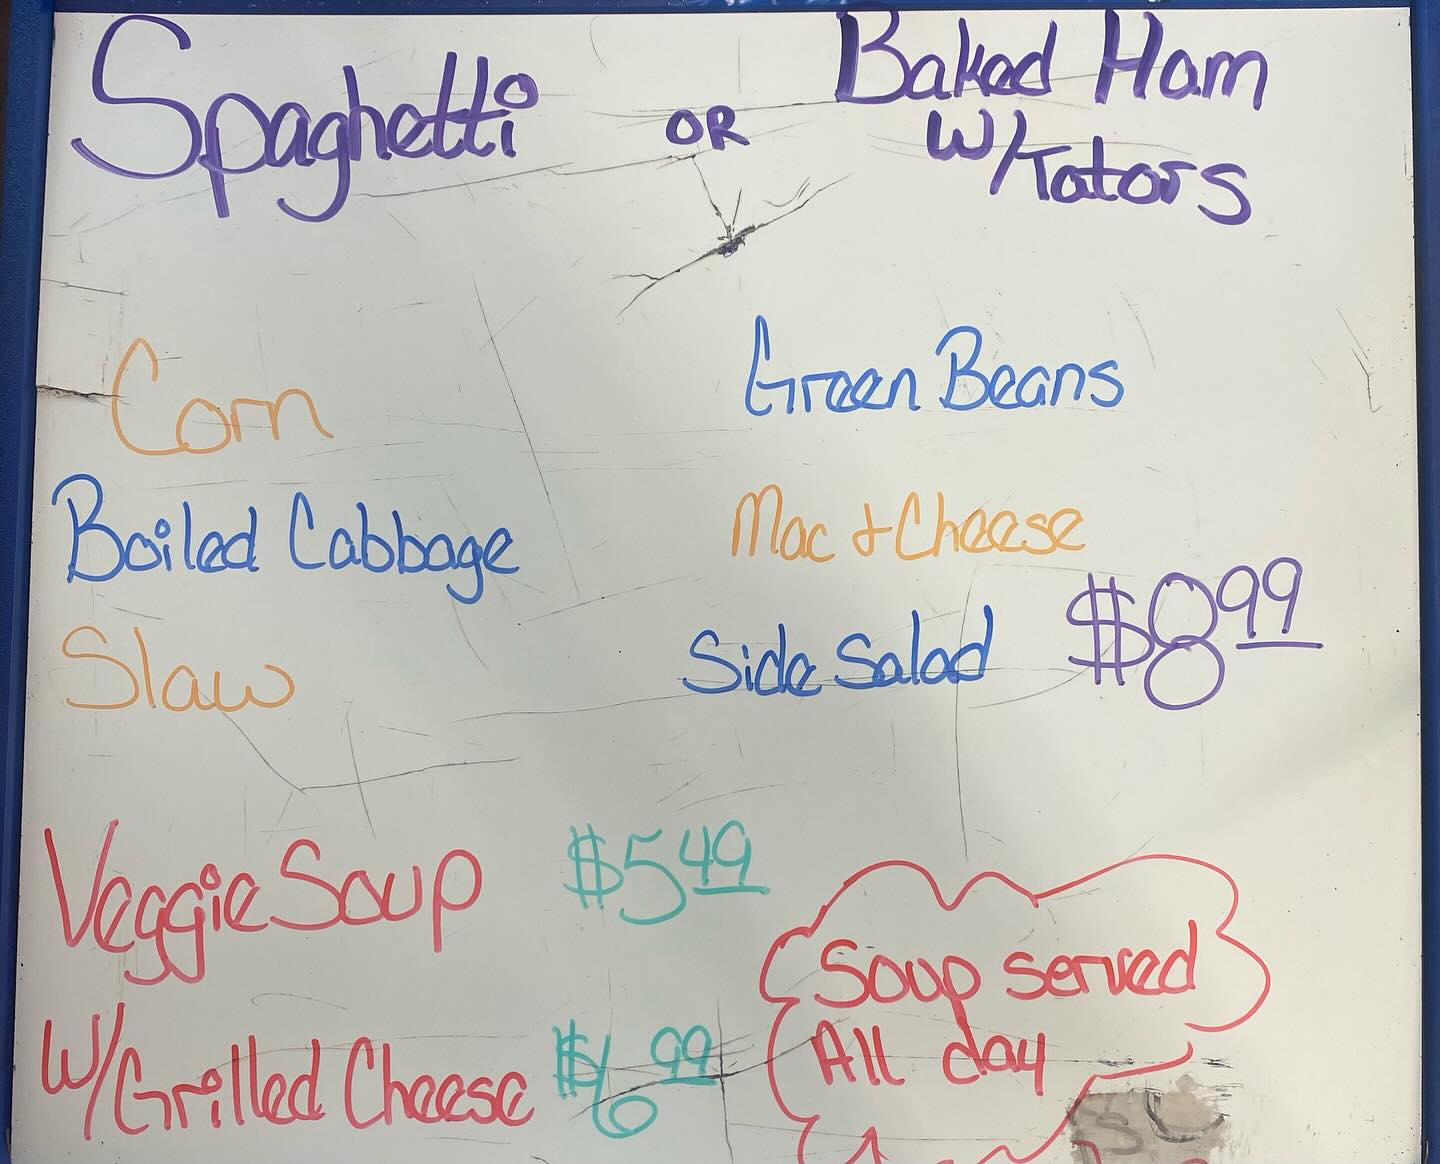 Spaghetti OR Baked Ham
W/Tators
Corn Green Beans
Boiled Cabbage Mac + Cheese
Slaw Side Salad $8.99
Veggie Soup $5.49
Soup served
All day
W/Grilled Cheese $6.99